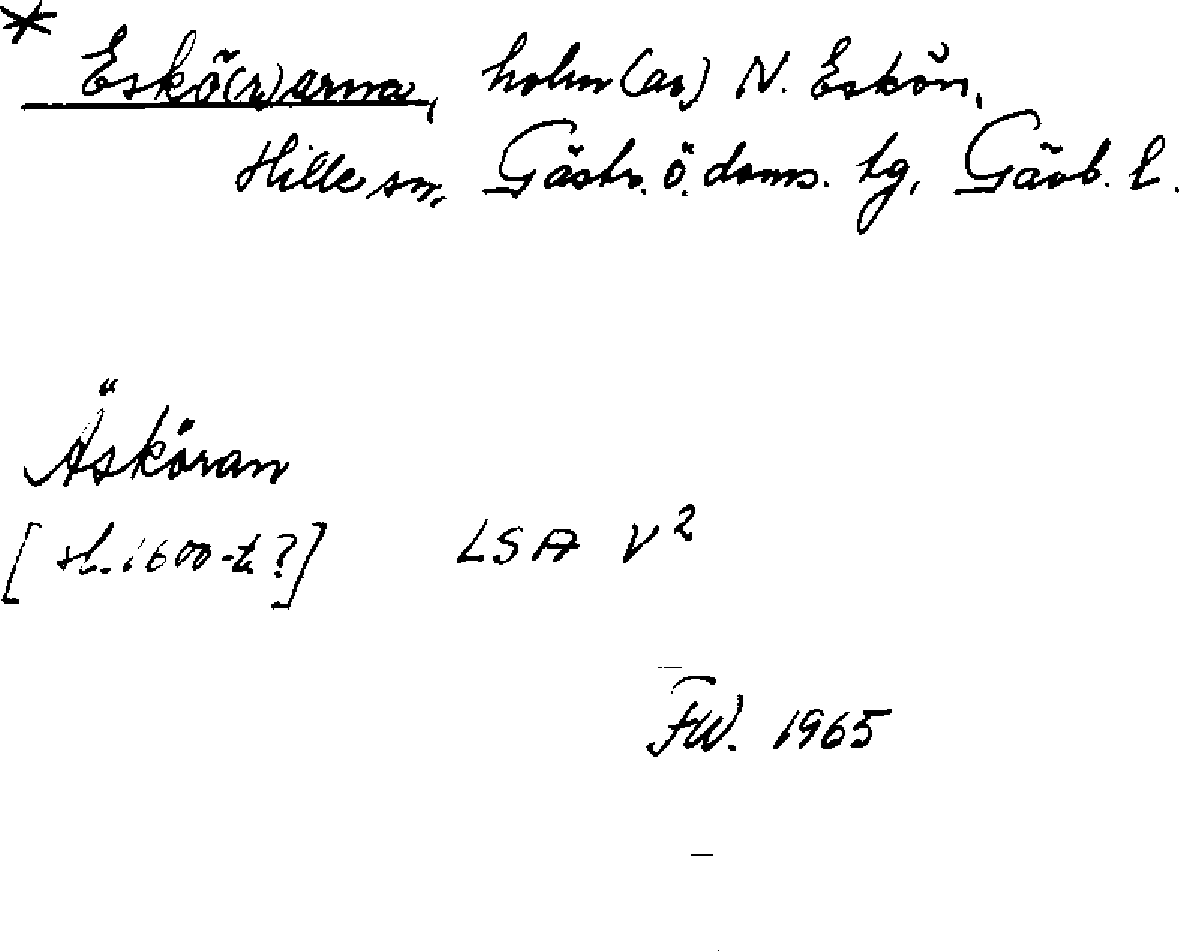 * Eskö(r)arna, holm(ar) N. Eskön,
Hille sn, Gästr. ö. doms. tg, Gävb. l.
Äsköran
[sl. 1600-t.?] LSA V²
FW. 1965